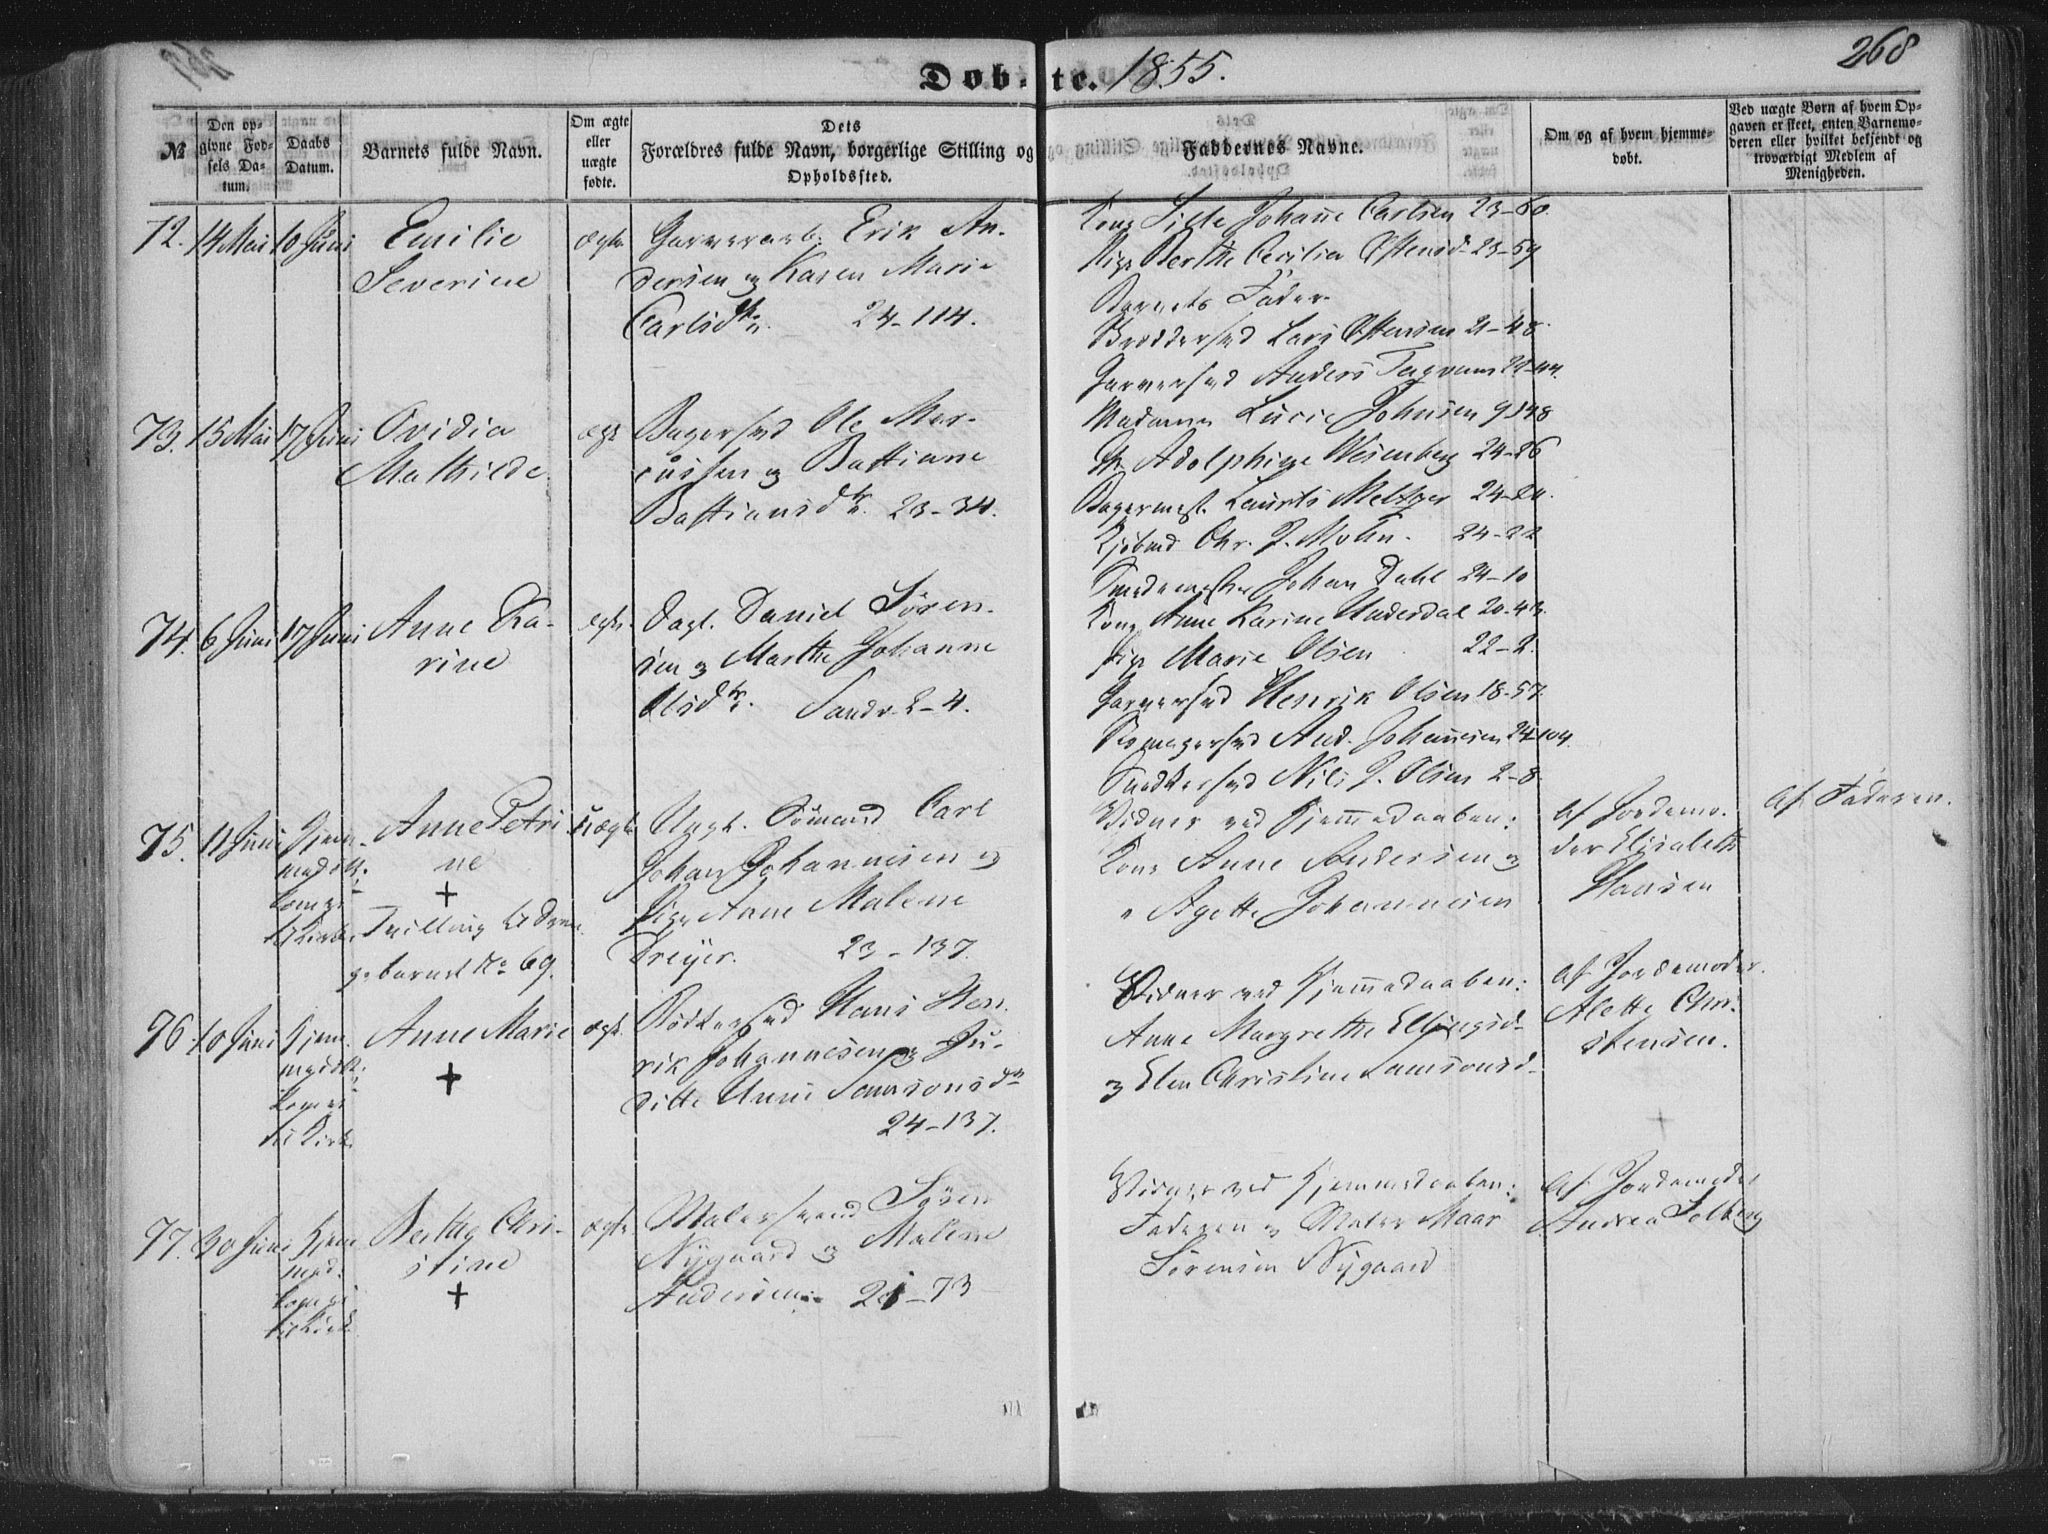 268
Døb-te. 1855.
№
Den opgivne Fødsels Datum.
Daabs Datum.
Barnets fulde Navn.
Om ægte eller uægte fødte.
Dets Forældres fulde Navn, borgerlige Stilling og Opholdssted.
Faddernes Navne.
Om og af hvem hjemmedøbt.
Ved uægte Børn af hvem Opgaven er skeet, enten Barnemoderen eller hvilket bekjendt og troværdigt Medlem af Menigheden.
72. 14 Mai 10 Juni Emilie
Severine
ægte
Garverarb. Erik An-
dersen og Karen Marie
Carlsdtr. 24-114.
Kone Johanne Carlsen 23-60.
Pige Berthe Cecilia Ostensd. 23-59
Barnets Fader
Lars Ostensen 21-48.
Garversvd Anders
73. 15 Mai 17 Juni Ovidia
Mathilde
ægte
Bagersvd Ole Mar-
cussen og Bastiane
Bastiansdtr. 23-34.
Madame Lucie Johnsen 9-148
Adolphine Wesenberg 24-26
Bagermest. Laurits Meltzer
Kjøbmd Chr. P. Mohn. 24-22
Smedemester Johan Dahl 24-10
74. 6 Juni 17 Juni Anne Ka-
rine
ægte.
Dagl. Daniel Søren-
sen og Marthe Johanne
Olsdtr. Sandv. 2-4.
Kone Anne Karine Underdal 20-43.
Pige Marie Olsen 22-2.
Garversvd Henrik Olsen 18-57.
Skomagersvd And. Johannesen 24-104.
Snedkersvd Nils J. Olsen 2-8.
75. 11 Juni Hjem-
medøbt.
kom ei
til Kirke
Anne Petri-
ne
+
Tvilling til Dren-
gebarnet No 69.
Uægte
Ungk. Sømand Carl
Johan Johannesen og
Pige Anne Malene
Dreyer. 23-137.
Vidner ved Hjemmedaaben:
Kone Anne Andersen og
" Agette Johannesen
Af Jordemo-
der Elisabeth
Hansen
Af Faderen.
76. 10 Juni Hjem-
medøbt.
kom ei
til Kirke
Anne Marie
+
ægte.
Bødkersvd Hans Hen-
rik Johannesen og Ju-
ditte Unni Samsonsdtr
24-137.
Vidner ved Hjemmedaaben:
Anne Margrethe Ellingsd.
og Elen Christine Samsonsd.
Af Jordemoder
Alette Chri-
stensen.
77. 20 Juni Hjem-
med.
kom ei
til Kirke
Berthe Chri-
stine
+
ægte
Malersvend Søren
Nygaard og Malene
Andersen. 21-73
Vidner ved Hjemmedaaben:
Faderen og Maler
Sørensen Nygaard
Af Jordemoder
Andrea Solberg